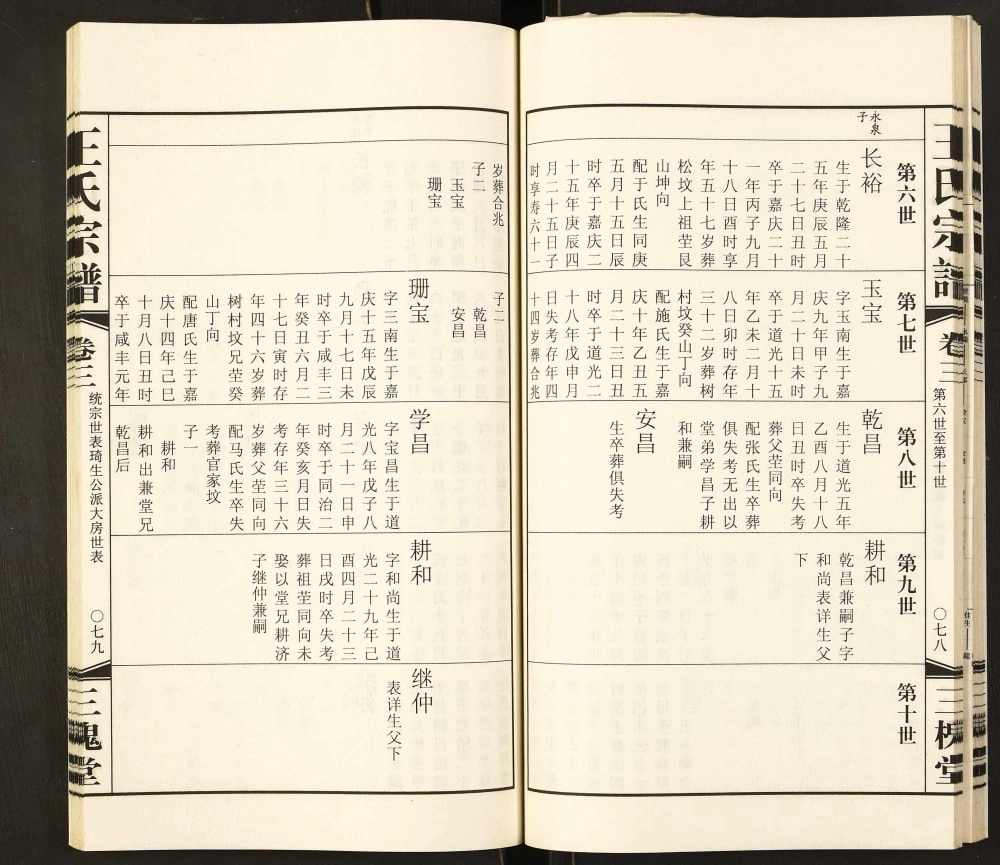 王氏宗谱
卷三
第六世至第十世
〇七八
三槐堂
第六世
永泉
子
长裕
生于乾隆二十
五年庚辰五月
二十七日丑时
卒于嘉庆二十
一年丙子九月
十八日酉时享
年五十七岁葬
松坟上祖茔艮
山坤向
配于氏生同庚
五月十五日辰
时卒于嘉庆二
十五年庚辰四
月二十五日子
时享寿六十一
第七世
玉宝
字玉南生于嘉
庆九年甲子九
月二十日未时
卒于道光十五
年乙未二月十
八日卯时存年
三十二岁葬树
村坟癸山丁向
配施氏生于嘉
庆十年乙丑五
月二十三日丑
时卒于道光二
十八年戊申月
日失考存年四
十四岁葬合兆
第八世
乾昌
生于道光五年
乙酉八月十八
日丑时卒失考
葬父茔同向
配张氏生卒葬
俱失考无出以
堂弟学昌子耕
和兼嗣
安昌
生卒葬俱失考
第九世
耕和
乾昌兼嗣子字
和尚表详生父
下
第十世
岁葬合兆
子二
玉宝
珊宝
子二
乾昌
安昌
珊宝
字三南生于嘉
庆十五年戊辰
九月十七日未
时卒于咸丰三
年癸丑六月二
十七日寅时存
年四十六岁葬
树村坟兄茔癸
山丁向
配唐氏生于嘉
庆十四年己巳
十月八日丑时
卒于咸丰元年
学昌
字宝昌生于道
光八年戊子八
月二十一日申
时卒于同治二
年癸亥月日失
考存年三十六
岁葬父茔同向
配马氏生卒失
考葬官家坟
子一
耕和
耕和出兼堂兄
乾昌后
耕和
字和尚生于道
光二十九年己
酉四月二十三
日戌时卒失考
葬祖茔同向未
娶以堂兄耕济
子继仲兼嗣
继仲
表详生父下
王氏宗谱
卷三
统宗世表琦生公派大房世表
〇七九
三槐堂